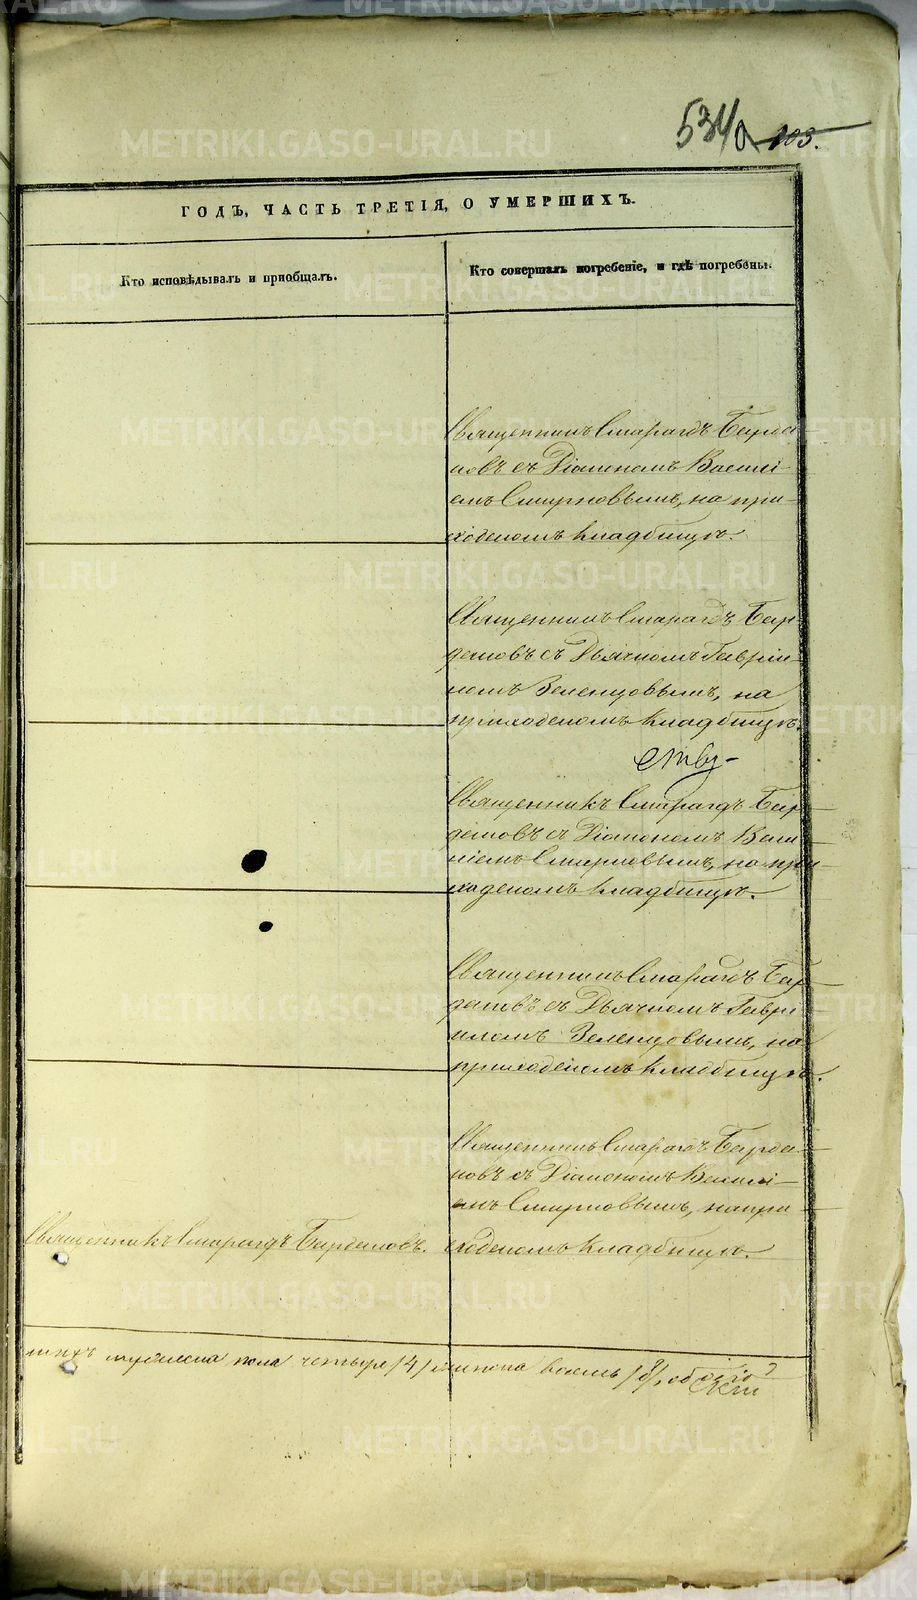 534
103.
ГОДЪ, ЧАСТЬ ТРЕТІЯ, О УМЕРШИХЪ.
Кто исповѣдывалъ и пріобщалъ.
Кто совершалъ погребеніе, и гдѣ погребены.
Священникъ Смарагдъ Бирса-
новъ съ Діакономъ Васили-
емъ Смирновымъ, на при-
ходскомъ кладбищѣ.
Священникъ Смарагдъ
съ Дьячкомъ Гаврии-
ломъ Зеленцовымъ, на
приходскомъ кладбищѣ.
Священникъ Смарагдъ
съ Діакономъ Васи-
ліемъ Смирновымъ, на при-
ходскомъ кладбищѣ.
Священникъ Смарагдъ
съ Дьячкомъ Гаврі-
иломъ Зеленцовымъ, на
приходскомъ кладбищѣ.
Священникъ Смарагдъ
съ Діакономъ Васили-
емъ Смирновымъ, на при-
Священникъ Смарагдъ
ходскомъ кладбищѣ.
мужеска пола четыре /4/ женска восемь /8/, обоего
METRIKI.GASO-URAL.RU